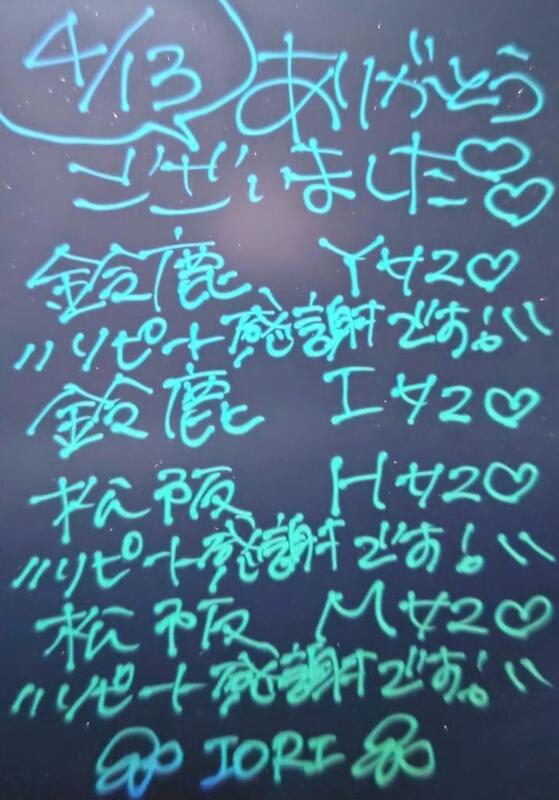 4/13 ありがとう
ございました♡♡
鈴鹿 Yサン♡
〃リピート感謝です!〃
鈴鹿 Iサン♡
松阪 Hサン♡
〃リピート感謝です!〃
松阪 Mサン♡
〃リピート感謝です!〃
IORI